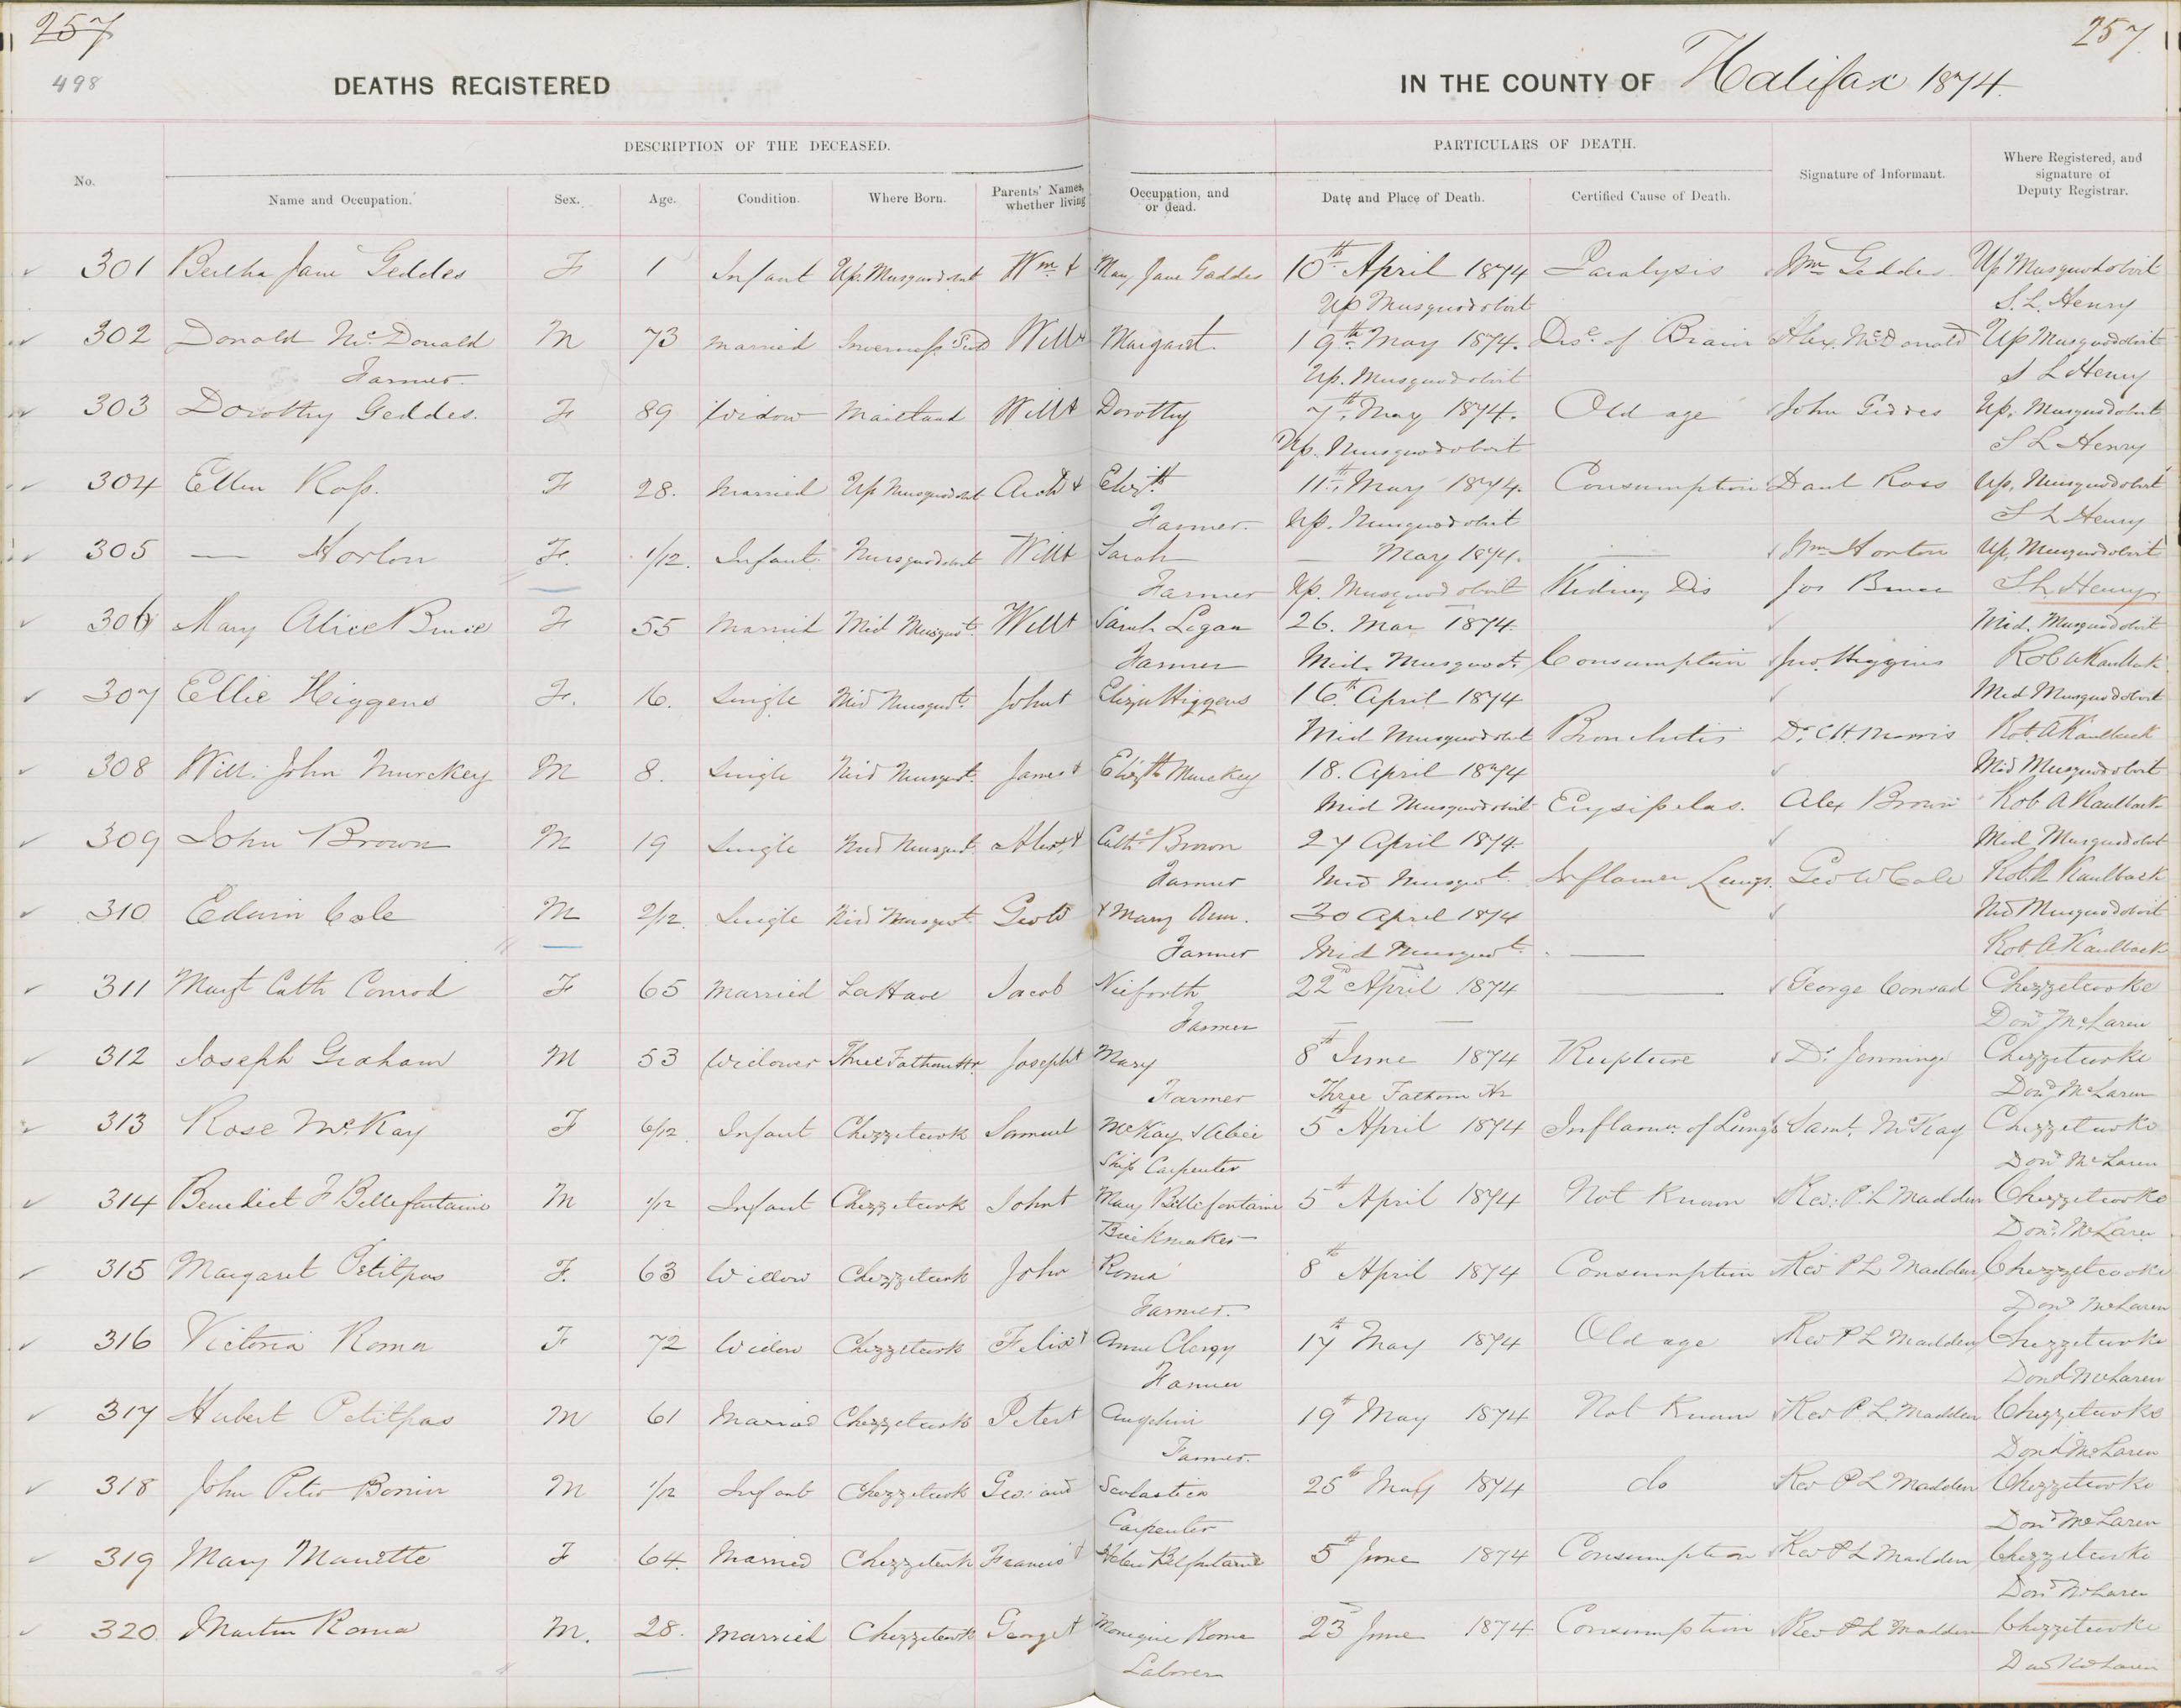 257 257
498 DEATHS REGISTERED IN THE COUNTY OF Halifax 1874.
DESCRIPTION OF THE DECEASED. PARTICULARS OF DEATH.
No. Name and Occupation. Sex. Age. Condition. Where Born. Parents' Names, whether living Occupation, and or dead. Date and Place of Death. Certified Cause of Death. Signature of Informant. Where Registered, and signature of Deputy Registrar.
301 Bertha Jane Geddes F 1 Infant Up. Musquodobit Wm & Mary Jane Gaddes 10th April 1874 Paralysis Wm Geddes Up Musquodoboit
Up Musquodoboit S. L. Henry
302 Donald McDonald M 73 Married Inverness Scotd Will & Margaret 19th May 1874. Dise of Brain Alex. McDonald Up Musquodoboit
Farmer. Up. Musquodoboit S L Henry
303 Dorothy Geddes. F 89 Widow Maitland Will & Dorothy 7th May 1874. Old age John Geddes Up. Musquodoboit
Up. Musquodoboit S L Henry
304 Ellen Ross. F 28. Married Up Musquodobit Archd & Elizth 11th May 1874. Consumption Danl Ross Up. Musquodoboit
Farmer. Up. Musquodobit S L Henry
305 — Horton F. 1/12. Infant. Musquodobit Will & Sarah — May 1874. — Wm Horton Up. Musquodoboit
Farmer Up. Musquodoboit Kidney Dis Jos Bruce S L Henry
306 Mary Alice Bruce F 55 Married Mid Musquot. Will & Sarah Logan 26. Mar 1874. Mid. Musquodoboit
Farmer Mid. Musquodt. Consumption Jno. Higgins Rob A Kaulback
307 Ellie Higgens F. 16. Single Mid Musqudt. John & Eliza Higgens 16th April 1874 Mid Musquodoboit
Mid Musquodobit Bronchitis Dr. C H. Morris Rot. A Kaulback
308 Will. John Murckey M 8. Single Mid Musquot. James & Elizth Murckey 18. April 1874 Mid Musquodoboit
Mid Musquodobit Erysipelas. Alex Brown Rob A Kaulback
309 John Brown M 19 Single Mid Musqudt. Alexr & Cathe Brown 27 April 1874. Mid Musquodobot
Farmer Mid Musquot. Inflamn Lungs. Geo W Cole Rob. A Kaulback
310 Edwin Cole M 2/12. Single Mid Musquot. Geo W & Mary Ann. 30 April 1874 Mid Musquodoboit
Farmer Mid Musquot. — Rot A Kaulback
311 Margt Cath Conrod F 65 Married LaHave Jacob Nieforth 22nd April 1874 — George Conrad Chezzetcooke
Farmer — — Dond McLaren
312 Joseph Graham M 53 Widower Three Fathom Hr. Joseph & Mary 8th June 1874 Rupture Dr. Jennings Chezzetcooke
Farmer Three Fathom Hr Dond McLaren
313 Rose McKay F 6/12. Infant Chezzetcook Samuel McKay & Alice 5th April 1874 Inflamn. of Lungs Saml. McKay Chezzetcooke
Ship Carpenter Dond McLaren
314 Benedict F Bellefontaine M 1/12 Infant Chezzetcook John & Mary Bellefontaine 5th April 1874 Not Known Rev. P. L Madden Chezzetcooke
Brickmaker Dond. McLaren
315 Margaret Petitpas F. 63 Widow Chezzetcook John Roma 8th April 1874 Consumption Rev P L Madden Chezzetcooke
Farmer. Dond McLaren
316 Victoria Roma F 72 Widow Chezzetcook Felix & Anne Clergy 17th May 1874 Old age Rev P L Madden Chezzetcooke
Farmer Dond McLaren
317 Hubert Petitpas M 61 Married Chezzetcook Peter & Angelini 19th May 1874 Not Known Rev P. L. Madden Chezzetcooke
Farmer. Dond McLaren
318 John Peter Bonin M 1/12 Infant Chezzetcook Geo: and Scolastica 25th May 1874 do Rev P L Madden Chezzetcooke
Carpenter Dond McLaren
319 Mary Manette F 64. Married Chezzetcook Francis & Helen Belfontaine 5th June 1874 Consumption Rev P L Madden Chezzetcooke
Dond McLaren
320. Martin Roma M. 28. Married Chezzetcook George & Monique Roma 23rd June 1874. Consumption Rev P L Madden Chezzetcooke
Laborer Dond McLaren